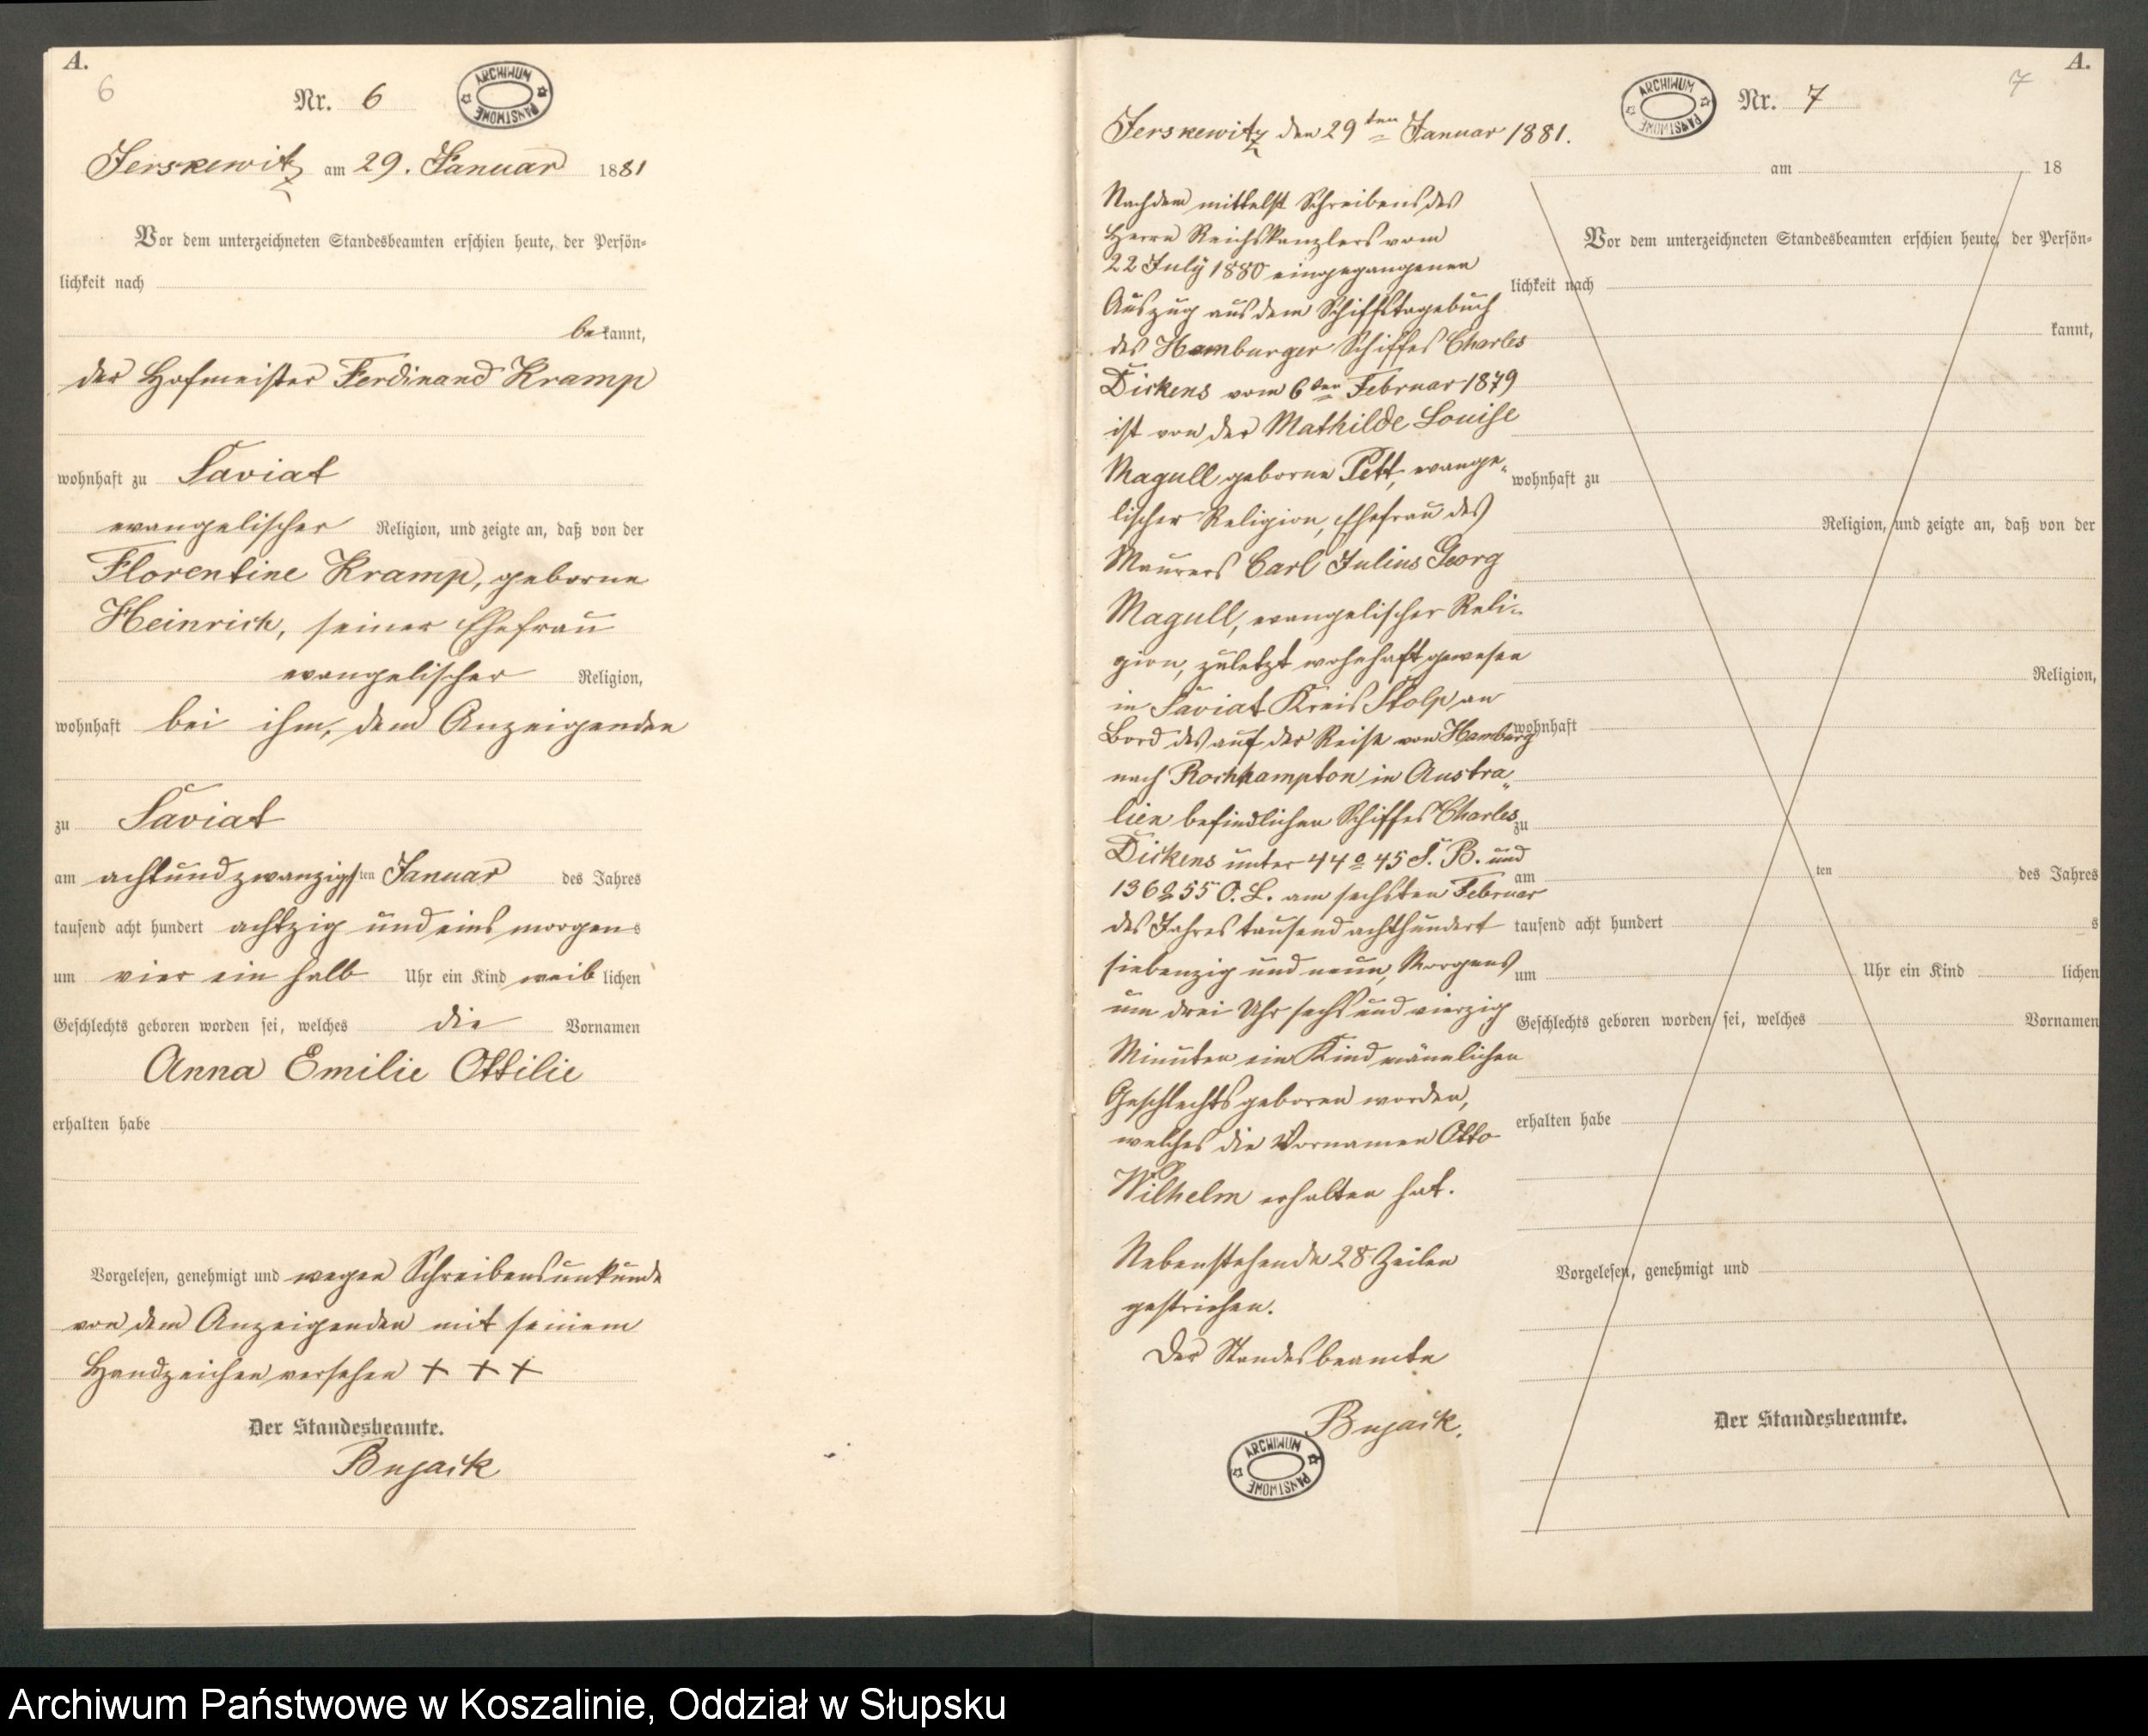 A.
6
Nr. 6
ARCHIWUM PAŃSTWOWE
Jerskewitz am 29. Januar 1881
Vor dem unterzeichneten Standesbeamten erschien heute, der Persön-
lichkeit nach
bekannt,
der Hofmeister Ferdinand Kramp
wohnhaft zu Saviat
evangelischer Religion, und zeigte an, daß von der
Florentine Kramp, geborne
Heinrich, seiner Ehefrau
evangelischer Religion,
wohnhaft bei ihm, dem Anzeigenden
zu Saviat
am achtundzwanzigsten Januar des Jahres
tausend acht hundert achtzig und eins morgens
um vier ein halb Uhr ein Kind weiblichen
Geschlechts geboren worden sei, welches die Vornamen
Anna Emilie Ottilie
erhalten habe
Vorgelesen, genehmigt und wegen Schreibensunkunde
von dem Anzeigenden mit seinem
Handzeichen versehen + + +
Der Standesbeamte.
Bujack
A.
7
Nr. 7
ARCHIWUM PAŃSTWOWE
Jerskewitz den 29ten Januar 1881.
Nachdem mittelst Schreibens des
Herrn Reichskanzlers vom
22 July 1880 eingegangenen
Auszug aus dem Schiffstagebuch
des Hamburger Schiffes Charles
Dickens vom 6ten Februar 1879
ist von der Mathilde Louise
Magull, geborne Pett, evange-
lischer Religion, Ehefrau des
Maurers Carl Julius Georg
Magull, evangelischer Reli-
gion, zuletzt wohnhaft gewesen
in Saviat Kreis Stolp an
Bord des auf der Reise von Hamburg
nach Rockhampton in Austra-
lien befindlichen Schiffes Charles
Dickens unter 44° 45 S. B. und
136° 55 O. L. am sechsten Februar
des Jahres tausend achthundert
siebenzig und neun, Morgens
um drei Uhr sechs und vierzig
Minuten ein Kind männlichen
Geschlechts geboren worden,
welches die Vornamen Otto
Wilhelm erhalten hat.
Nebenstehende 28 Zeilen
gestrichen.
Der Standesbeamte
Bujack.
ARCHIWUM PAŃSTWOWE
am 18
Vor dem unterzeichneten Standesbeamten erschien heute, der Persön-
lichkeit nach
kannt,
wohnhaft zu
Religion, und zeigte an, daß von der
Religion,
wohnhaft
zu
am ten des Jahres
tausend acht hundert s
um Uhr ein Kind lichen
Geschlechts geboren worden sei, welches Vornamen
erhalten habe
Vorgelesen, genehmigt und
Der Standesbeamte.
Archiwum Państwowe w Koszalinie, Oddział w Słupsku